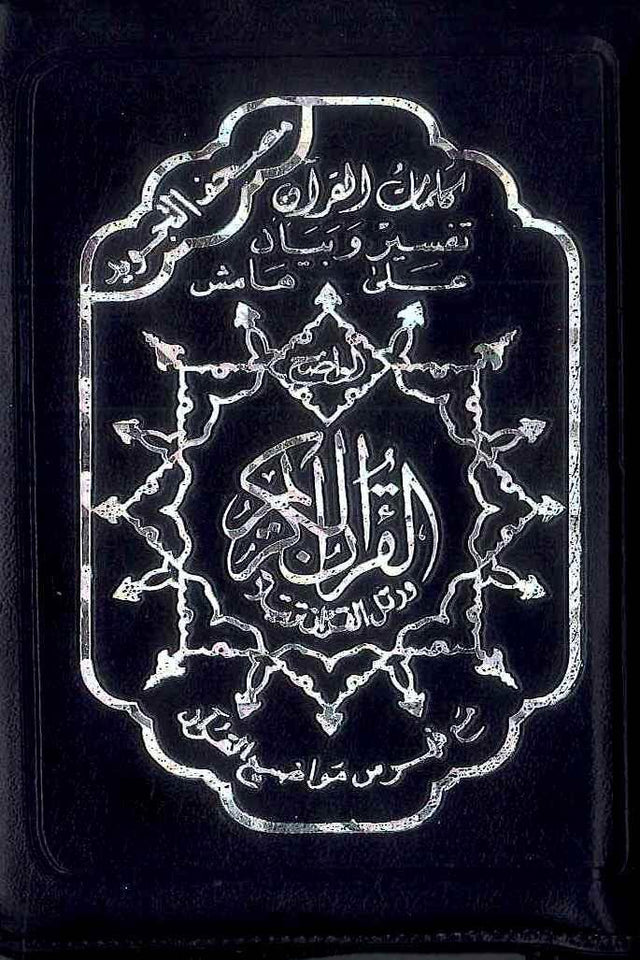 مصحف التجويد
كلمات القرآن
تفسير وبيان
على هامش
الواضح
القرآن الكريم
ورتل القرآن ترتيلا
مع فهرس مواضيع القرآن